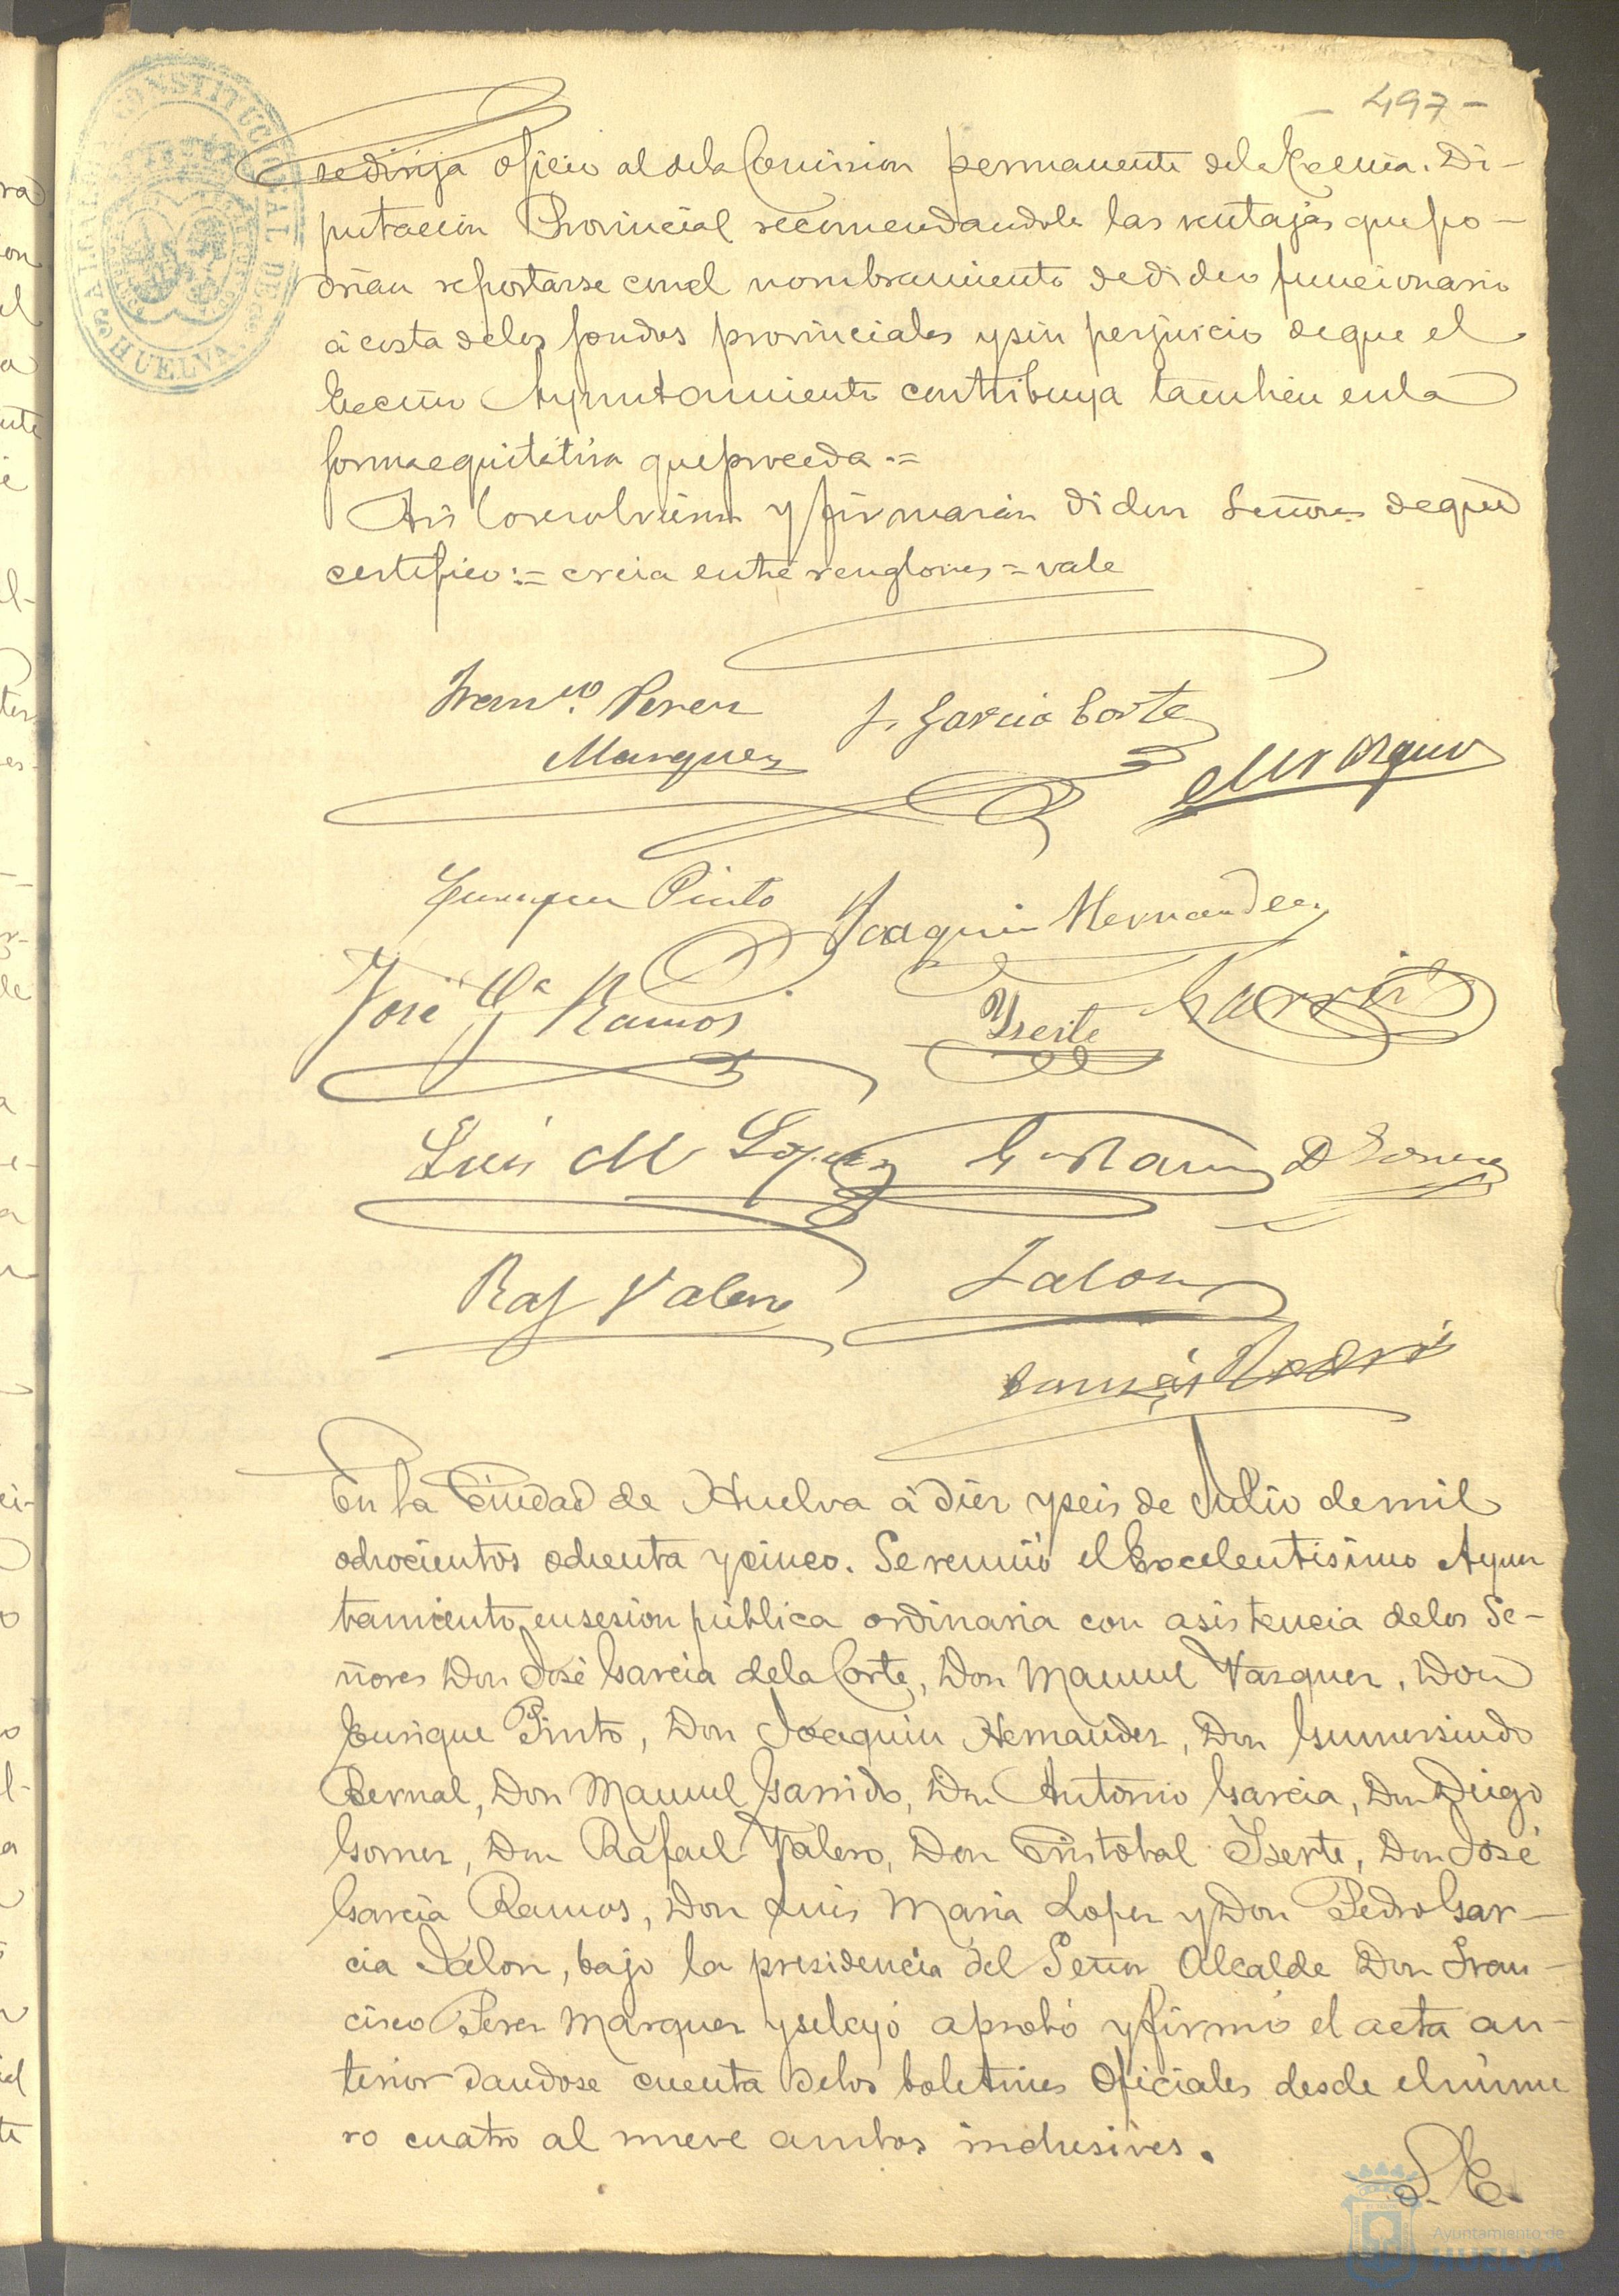 - 497 -
ALCALDIA CONSTITUCIONAL DE HUELVA
se dirija oficio al de la Comision permanente de la Excma. Di-
putacion Provincial recomendandole las ventajas que po-
drian reportarse con el nombramiento de dicho funcionario
á costa de los fondos provinciales y sin perjuicio de que el
Excmo Ayuntamiento contribuya tambien en la
forma equitativa que proceda .=
Asi lo resolvieron y firmarán dichos Señores de que
certifico := creia entre renglones = vale
Franco. Perez
Marquez
J. Garcia Corte
M Vazquez
Enrique Pinto
Joaquin Hernandez
José Ga Ramos
Iserte
Garrido
Luis M Lopez
D Gomez
Raf Valero
Jalon
En la Ciudad de Huelva á diez y seis de Julio de mil
ochocientos ochenta y cinco. Se reunió el Excelentisimo Ayun
tamiento en sesion pública ordinaria con asistencia de los Se-
ñores Don José Garcia de la Corte, Don Manuel Vazquez, Don
Enrique Pinto, Don Joaquin Hernandez, Don Gumersindo
Bernal, Don Manuel Garrido, Don Antonio Garcia, Don Diego
Gomez, Don Rafael Valero, Don Cristobal Iserte, Don José
Garcia Ramos, Don Luis Maria Lopez y Don Pedro Gar-
cia Jalon, bajo la presidencia del Señor Alcalde Don Fran-
cisco Perez Marquez y se leyó aprobó y firmó el acta an-
terior dandose cuenta de los boletines Oficiales desde el núme
ro cuatro al nueve ambos inclusives.
S. E.
Ayuntamiento de
HUELVA